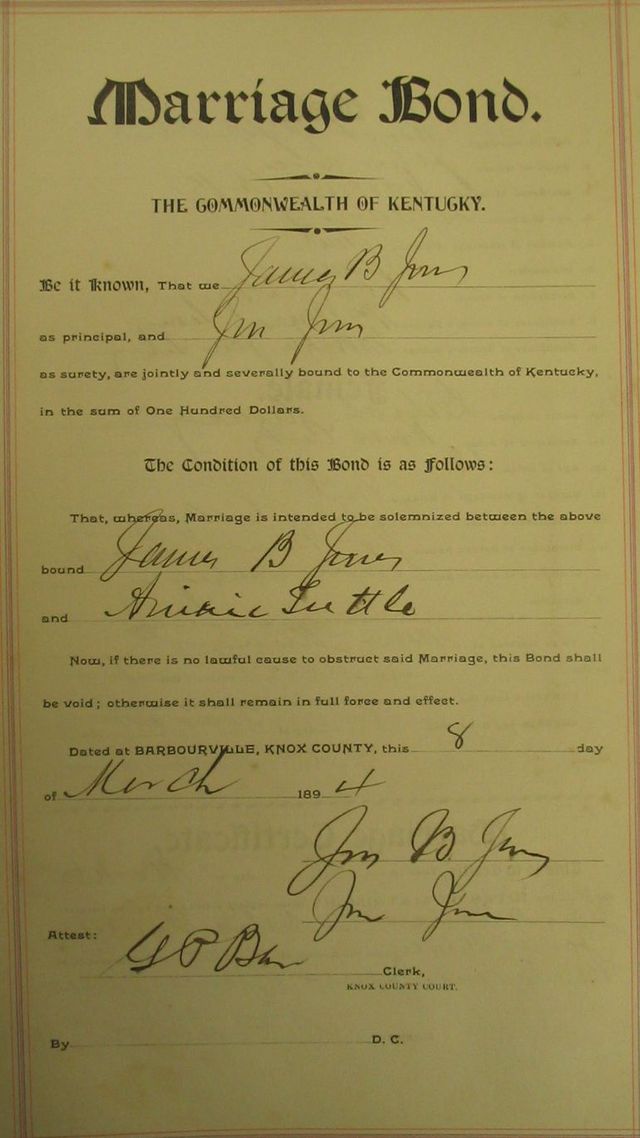 Marriage Bond.
THE COMMONWEALTH OF KENTUCKY.
Be it Known, That we James B Jones
as principal, and Jones
as surety, are jointly and severally bound to the Commonwealth of Kentucky,
in the sum of One Hundred Dollars.
The Condition of this Bond is as Follows:
That, whereas, Marriage is intended to be solemnized between the above
bound James B Jones
and Tuttle
Now, if there is no lawful cause to obstruct said Marriage, this Bond shall
be void; otherwise it shall remain in full force and effect.
Dated at BARBOURVILLE, KNOX COUNTY, this 8 day
of March 1894
Jas B Jones
Jones
Attest:
Clerk,
KNOX COUNTY COURT.
By D. C.